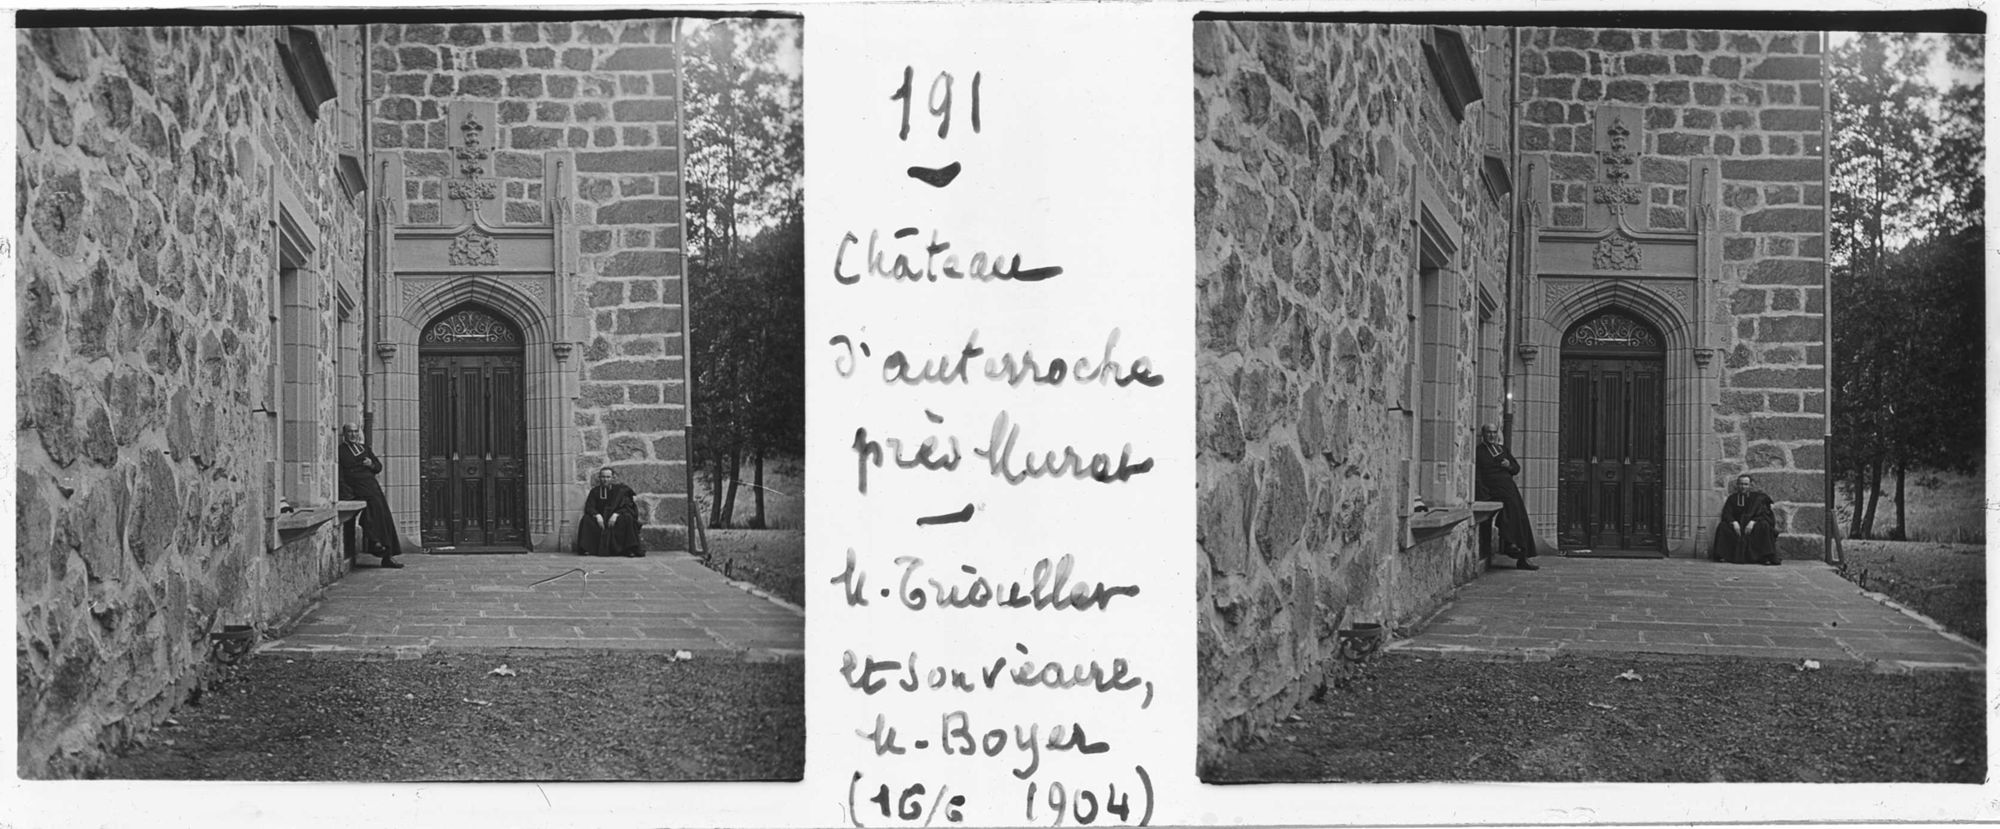 191
Château
d'auterroche
près Murat
M. Triouller
et son vicaire,
M. Boyer
(16/6 1904)